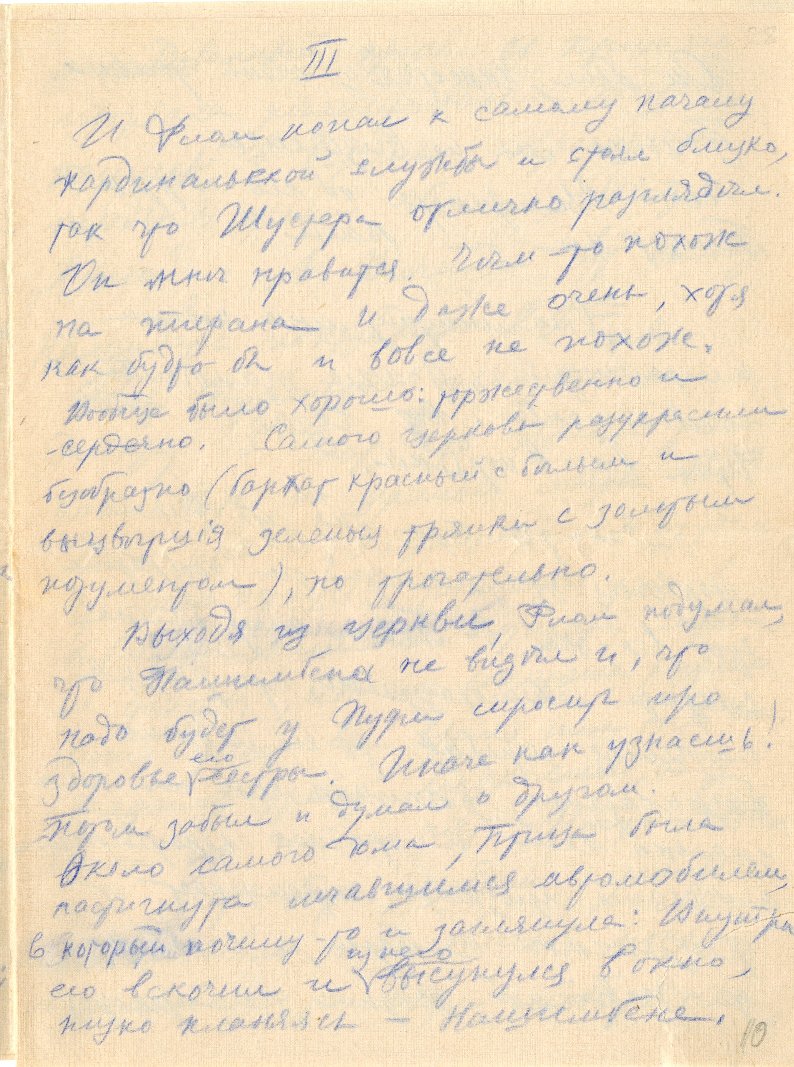 III
И Флам попал к самому началу
кардинальской службы и стоял близко,
так что Шустера отлично разглядел.
Он мне нравится. Чем-то похож
на тирана и даже очень, хотя
как будто бы и вовсе не похож.
Вообще было хорошо: торжественно и
сердечно. Самого церковь разукрасили
безобразно (бархат красный с белым и
выцветшия зеленыя тряпки с золотым
позументом), но трогательно.
Выходя из церкви, Флам подумал,
что Нашимбена не видел и, что
надо будет у Пуфи спросить про
здоровье его сестры. Иначе как узнаешь!
Потом забыл и думал о другом.
Около самого дома, Птица была
настигнута мчавшимся автомобилем,
в который почему-то и заглянула: Внутри
его вскочил и из него высунулся в окно,
низко кланяясь — Нашимбене.
10